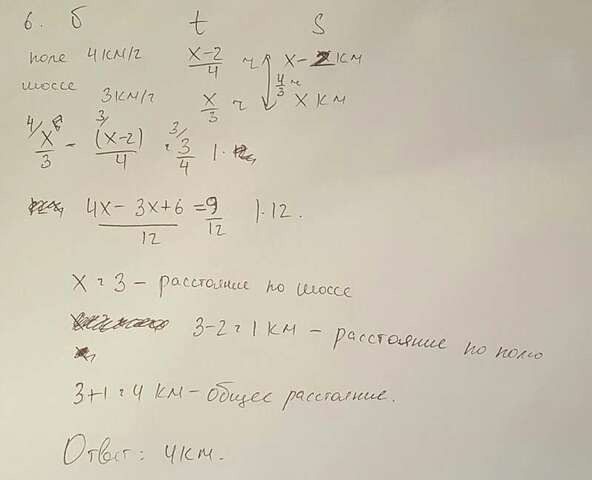 6. б t S
поле 4 км/ч x-2/4 ч x-2 км
шоссе 4/3 ч
3 км/ч x/3 ч x км
4/ x/3 - 3/ (x-2)/4 = 3/ 3/4 | ·
4x - 3x + 6/12 = 9/12 | · 12.
x = 3 - расстояние по шоссе
3-2=1 км - расстояние по полю
3+1=4 км - общее расстояние.
Ответ: 4 км.